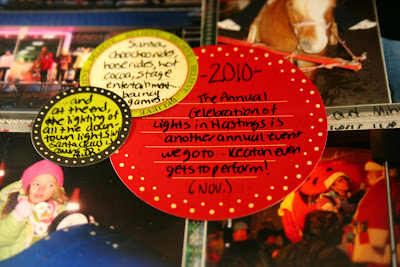 Santa,
choo choo rides,
horse rides, hot
cocoa, stage
entertainment,
bouncy
games...
BELIEVE
...and
at the end,
the lighting of
all the down
town lights w/
Santa
-2010-
The Annual
Celebration of
Lights in Hastings is
another annual event
we go to - Keaton even
gets to perform!
(Nov.)